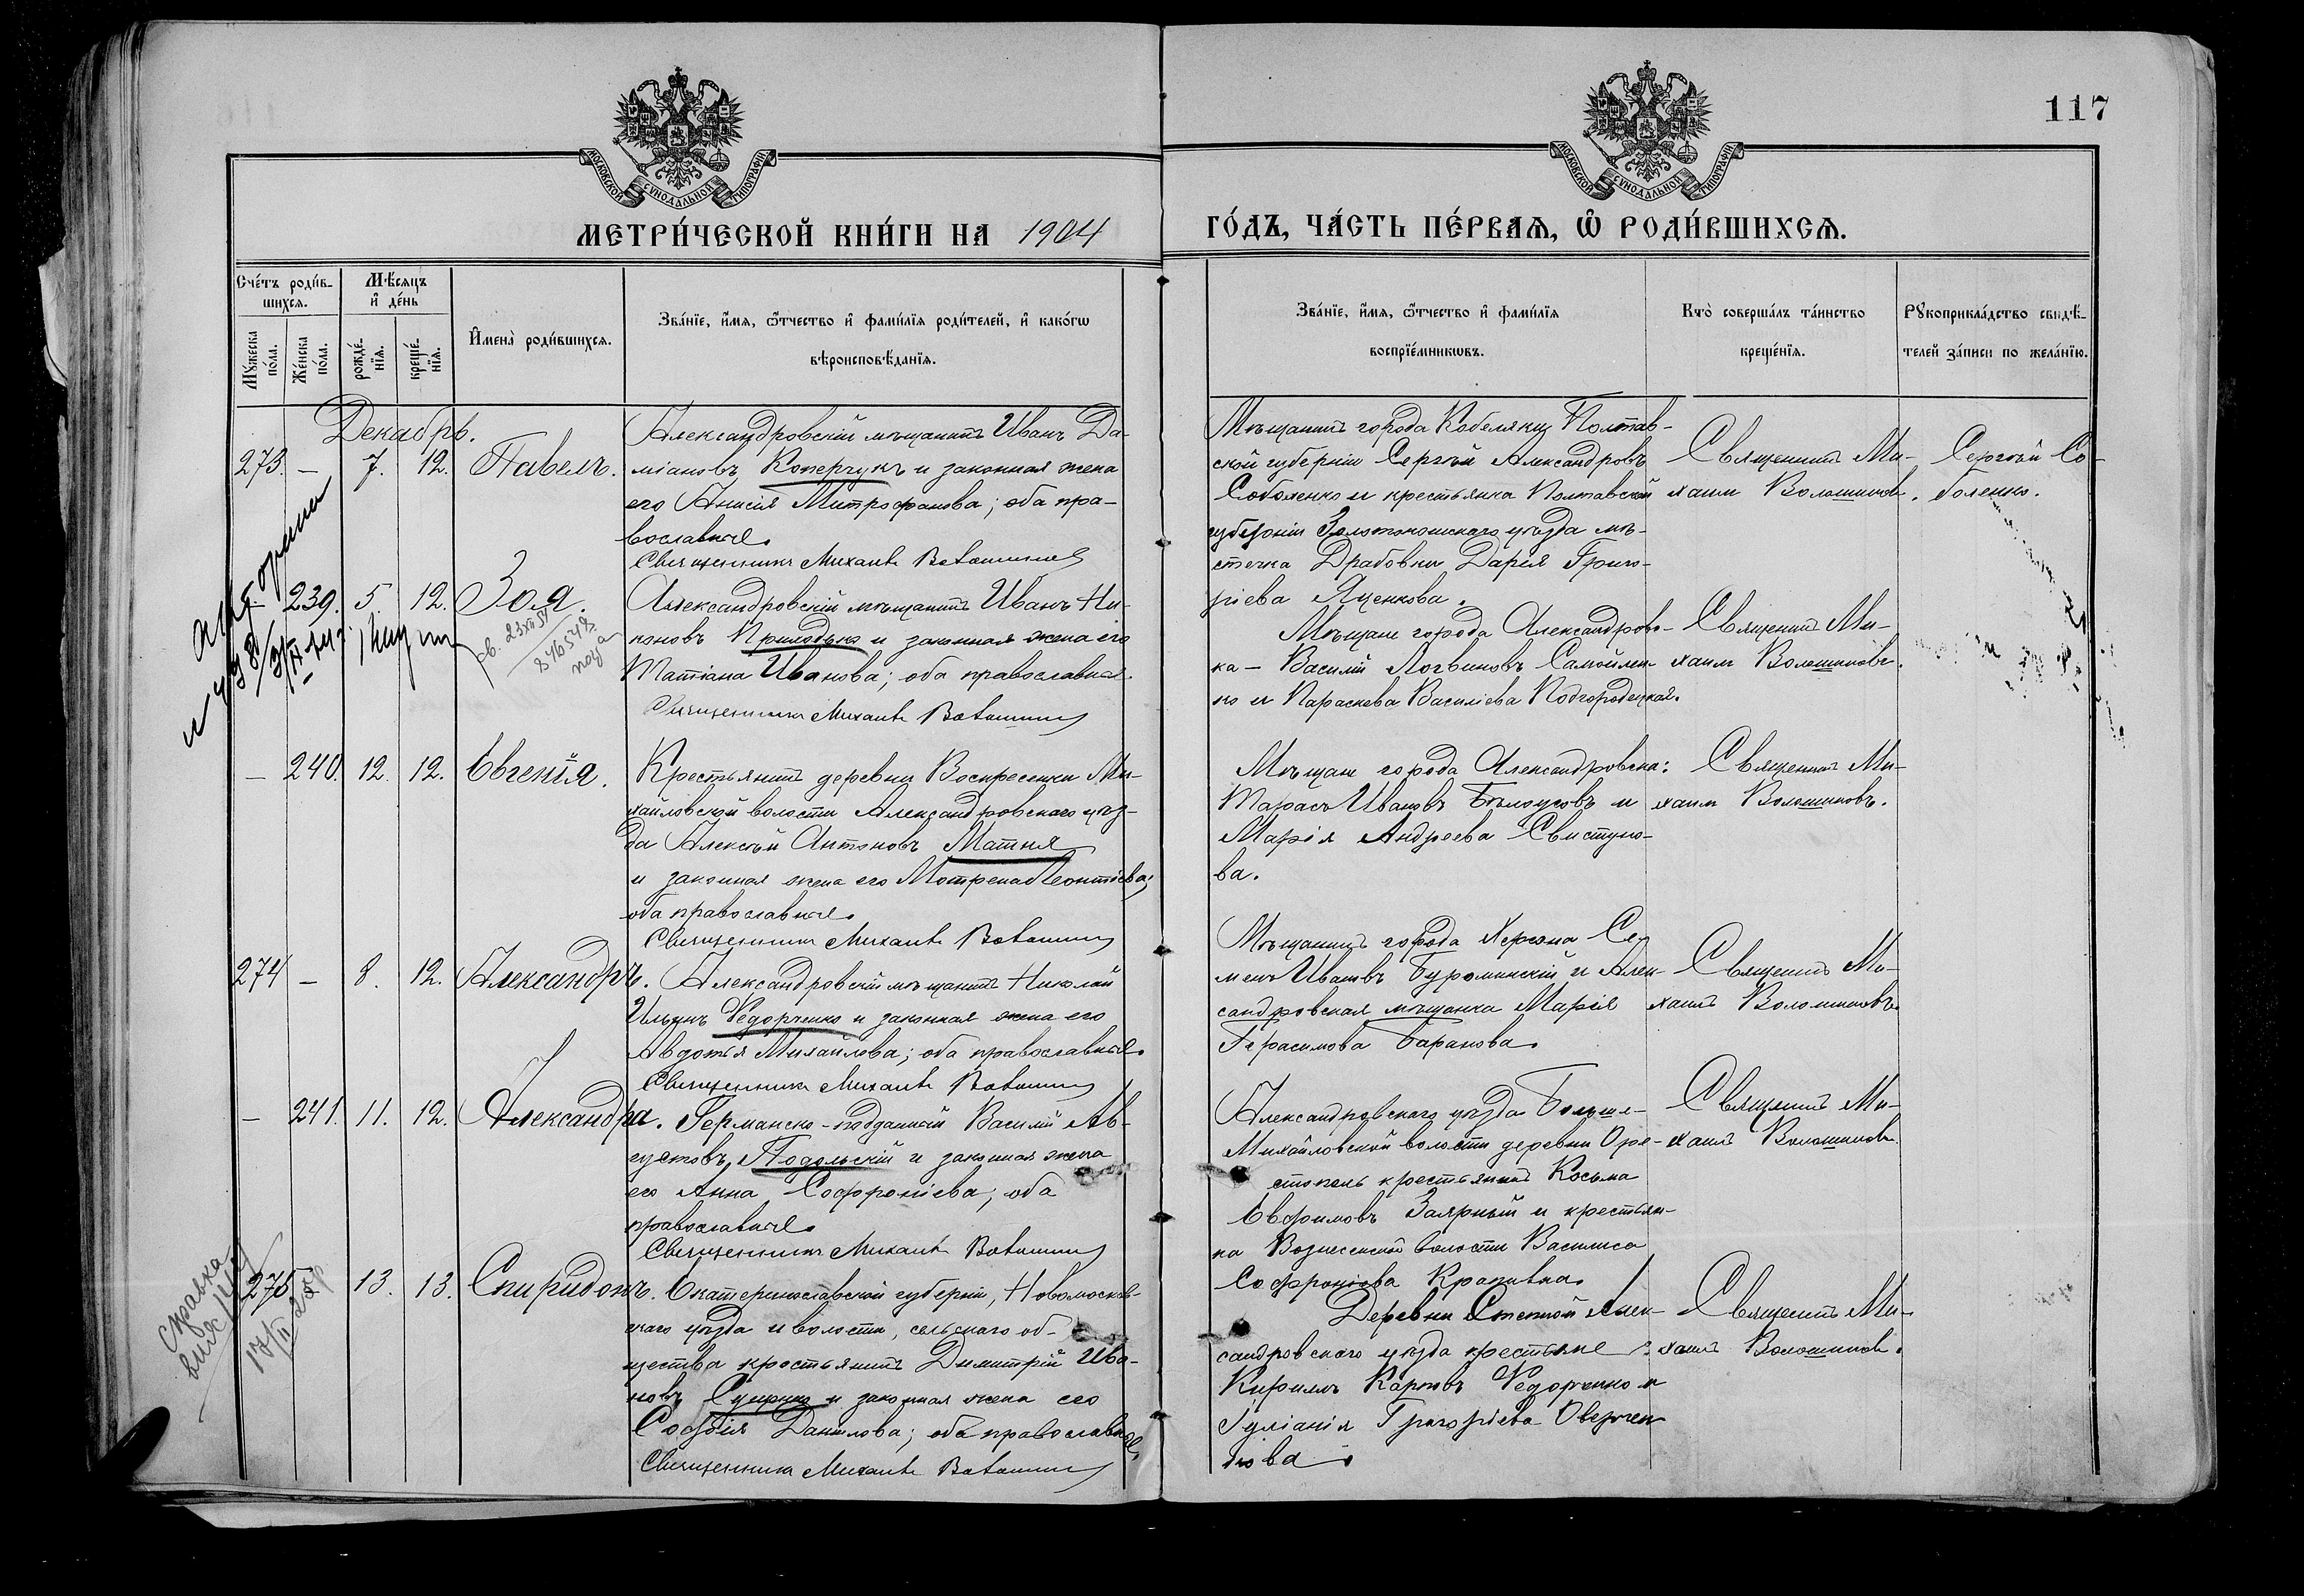 117
МОСКОВСКОЙ СѴНОДАЛЬНОЙ ТИПОГРАФІИ
МОСКОВСКОЙ СѴНОДАЛЬНОЙ ТИПОГРАФІИ
МЕТРИ́ЧЕСКОЙ КНИ́ГИ НА 1904
ГО́ДЪ, ЧА́СТЬ ПЕ́РВАѦ, Ѡ҆ РОДИ́ВШИХСѦ.
Сче́тъ роди́в-
шихсѧ.
Мꙋ́жеска по́ла.
Же́нска по́ла.
Мѣ́сѧцъ и҆ де́нь
рожде́-
нїѧ.
креще́-
нїѧ.
И҆мена̀ роди́вшихсѧ.
Зва́нїе, и҆́мѧ, ѻ҆́тчество и҆ фами́лїѧ роди́телей, и҆ како́гѡ
вѣроисповѣ́данїѧ.
Зва́нїе, и҆́мѧ, ѻ҆́тчество и҆ фами́лїѧ
воспрїе́мникѡвъ.
Кто̀ соверша́лъ та́инство
креще́нїѧ.
Рꙋкоприкла́дство свидѣ́-
телей за́писи по жела́нїю.
Декабрь.
273. — 7. 12. Павелъ.
Александровскій мѣщанинъ Иванъ Да-
міановъ Коперчукъ и законная жена
его Анисія Митрофанова; оба пра-
вославные.
Священникъ Михаилъ Волошиновъ
Мѣщанинъ города Кобеляки Полтав-
ской губерніи Сергѣй Александровъ
Соболенко и крестьянка Полтавской
губерніи Золотоношскаго уѣзда мѣ-
стечка Драбовки Дарія Григо-
ріева Яценкова.
Священникъ Ми-
хаилъ Волошиновъ.
Сергѣй Со-
боленко.
— 239. 5. 12. Зоя.
Александровскій мѣщанинъ Иванъ Ни-
коновъ Приходько и законная жена его
Татіана Иванова; оба православные.
Священникъ Михаилъ Волошиновъ
Мѣщане города Александровс-
ка – Василій Логвиновъ Самойлен-
ко и Параскева Василіева Подгородецкая.
Священникъ Ми-
хаилъ Волошиновъ.
— 240. 12. 12. Евгенія.
Крестьянинъ деревни Воскресенки Ми-
хайловской волости Александровскаго уѣз-
да Алексѣй Антоновъ Матня
и законная жена его Мотрена Леонтіева;
оба православные.
Священникъ Михаилъ Волошиновъ
Мѣщане города Александровска:
Тарасъ Ивановъ Бѣлоусовъ и
Марія Андреева Свистуно-
ва.
Священникъ Ми-
хаилъ Волошиновъ.
274 — 8. 12. Александръ.
Александровскій мѣщанинъ Николай
Ильинъ Ѳедорченко и законная жена его
Авдотья Михайлова; оба православные.
Священникъ Михаилъ Волошиновъ
Мѣщанинъ города Херсона Се-
менъ Ивановъ Буроминскій и Алек-
сандровская мѣщанка Марія
Герасимова Баранова.
Священникъ Ми-
хаилъ Волошиновъ.
— 241. 11. 12. Александра.
Германско-подданный Василій Ав-
густовъ Подольскій и законная жена
его Анна Софроніева; оба
православные.
Священникъ Михаилъ Волошиновъ
Александровскаго уѣзда Больше-
Михайловской волости деревни Оре-
стополь крестьянинъ Косьма
Евфимовъ Заярный и крестьян-
ка Вознесенской волости Василиса
Софроніева Крапивка.
Священникъ Ми-
хаилъ Волошиновъ.
275. 13. 13. Спиридонъ.
Екатеринославской губерніи, Новомосков-
скаго уѣзда и волости, сельскаго об-
щества крестьянинъ Димитрій Ива-
новъ и законная жена его
Софія Данилова; оба православные.
Священникъ Михаилъ Волошиновъ
Деревни Степной Алек-
сандровскаго уѣзда крестьяне:
Кириллъ Карповъ Ѳедорченко и
Іуліанія Григоріева Оверчен-
кова.
Священникъ Ми-
хаилъ Волошиновъ.
Справка